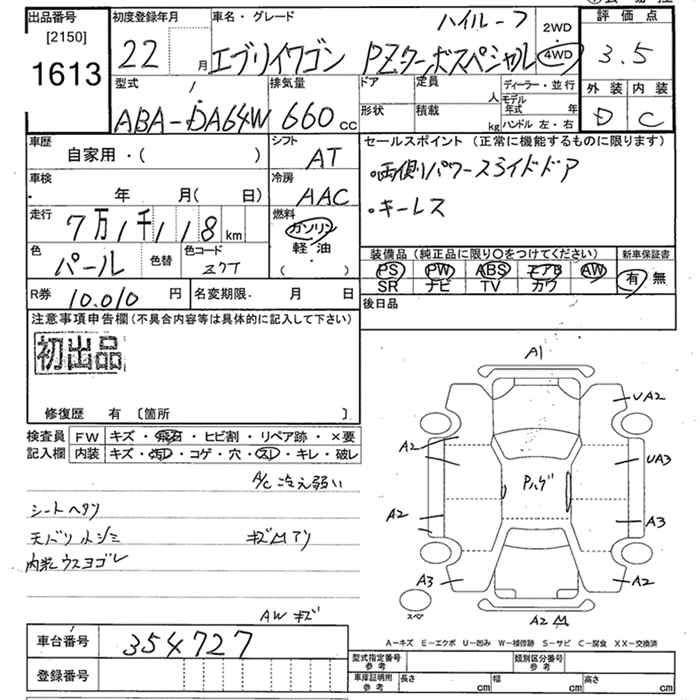 出品番号 初度登録年月 車名・グレード ハイルーフ 2WD 評価点
[2150]
1613 22 月 エブリイワゴン PZターボスペシャル ・4WD 3.5
型式 排気量 ドア 定員 人 ディーラー・並行 外装 内装
モデル年式 年
形状 積載 kg ハンドル 左・右
ABA-DA64W 660cc D C
車歴 シフト セールスポイント(正常に機能するものに限ります)
自家用・( ) AT
車検 冷房 ・両側パワースライドドア
年 月( 日) AAC
走行 燃料 ・キーレス
7万1千118km ガソリン
軽・油
( )
色 色替 色コード 装備品(純正品に限り○をつけてください) 新車保証書
パール Z7T PS PW ABS エアB AW 有・無
SR ナビ TV カワ
R券 10.010円 名変期限 月 日 後日品
注意事項申告欄(不具合内容等は具体的に記入して下さい)
初出品
A1
UA2
修復歴 有 [箇所 ]
検査員 FW キズ・飛石・ヒビ割・リペア跡・×要
記入欄 内装 キズ・汚レ・コゲ・穴・スレ・キレ・破レ
A2 UA3
A/C 冷え弱い
Pハゲ
シートヘタリ
A2 A3
天バリ シミ キズM アリ
内装ウスヨゴレ
A3 A2
スペア
AW キズ
A2 M
車台番号 354727
A-キズ E-エクボ U-凹み W-補修跡 S-サビ C-腐食 XX-交換済
登録番号 型式指定番号 参考 類別区分番号 参考
車庫証明用 参考 長さ cm 幅 cm 高さ cm